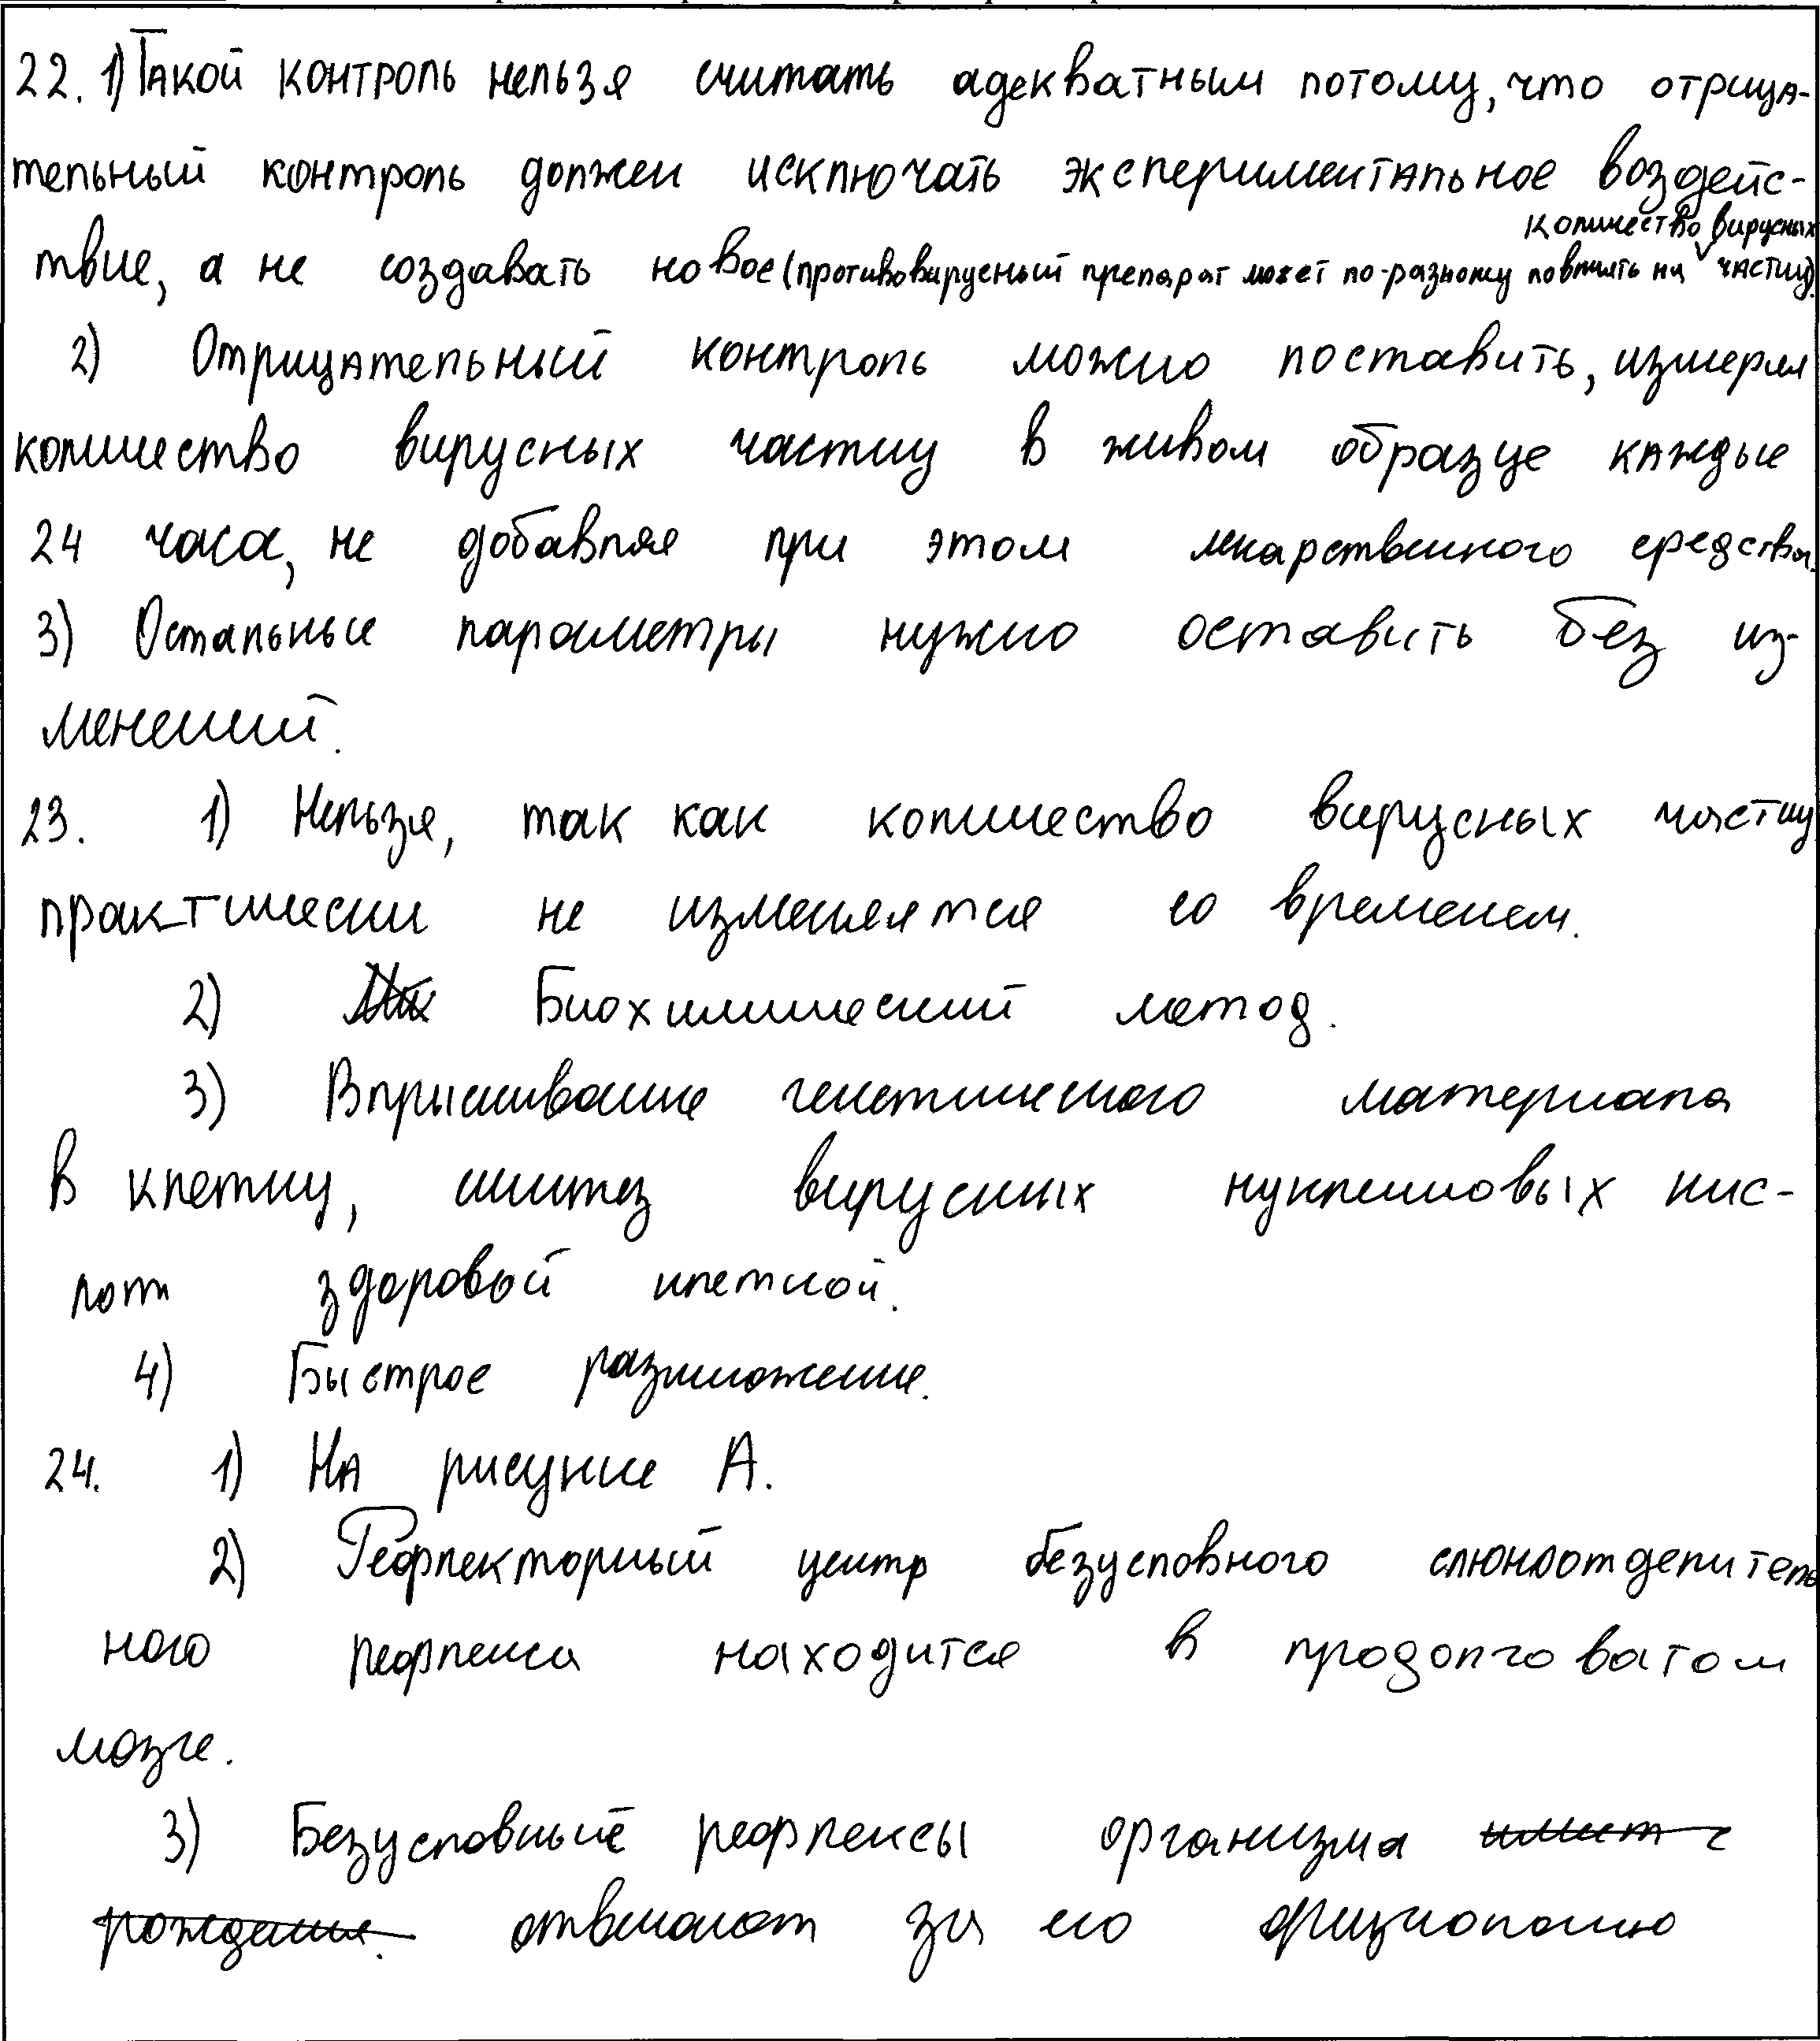 22. 1) Такой контроль нельзя считать адекватным потому, что отрица-
тельный контроль должен исключать экспериментальное воздейс-
количество вирусных
твие, а не создавать новое (противовирусный препарат может по-разному повлиять на частиц).
2) Отрицательный контроль можно поставить, измеряя
количество вирусных частиц в живом образце каждые
24 часа, не добавляя при этом лекарственного средства.
3) Остальные параметры нужно оставить без из-
менений.
23. 1) Нельзя, так как количество вирусных частиц
практически не изменяется со временем.
2) Биохимический метод.
3) Впрыскивание генетического материала
в клетку, синтез вирусных нуклеиновых кис-
лот здоровой клеткой.
4) Быстрое размножение.
24. 1) На рисунке А.
2) Рефлекторный центр безусловного слюноотделитель
ного рефлекса находится в продолговатом
мозге.
3) Безусловные рефлексы организма имеет с
рождения. отвечают за его физиологию